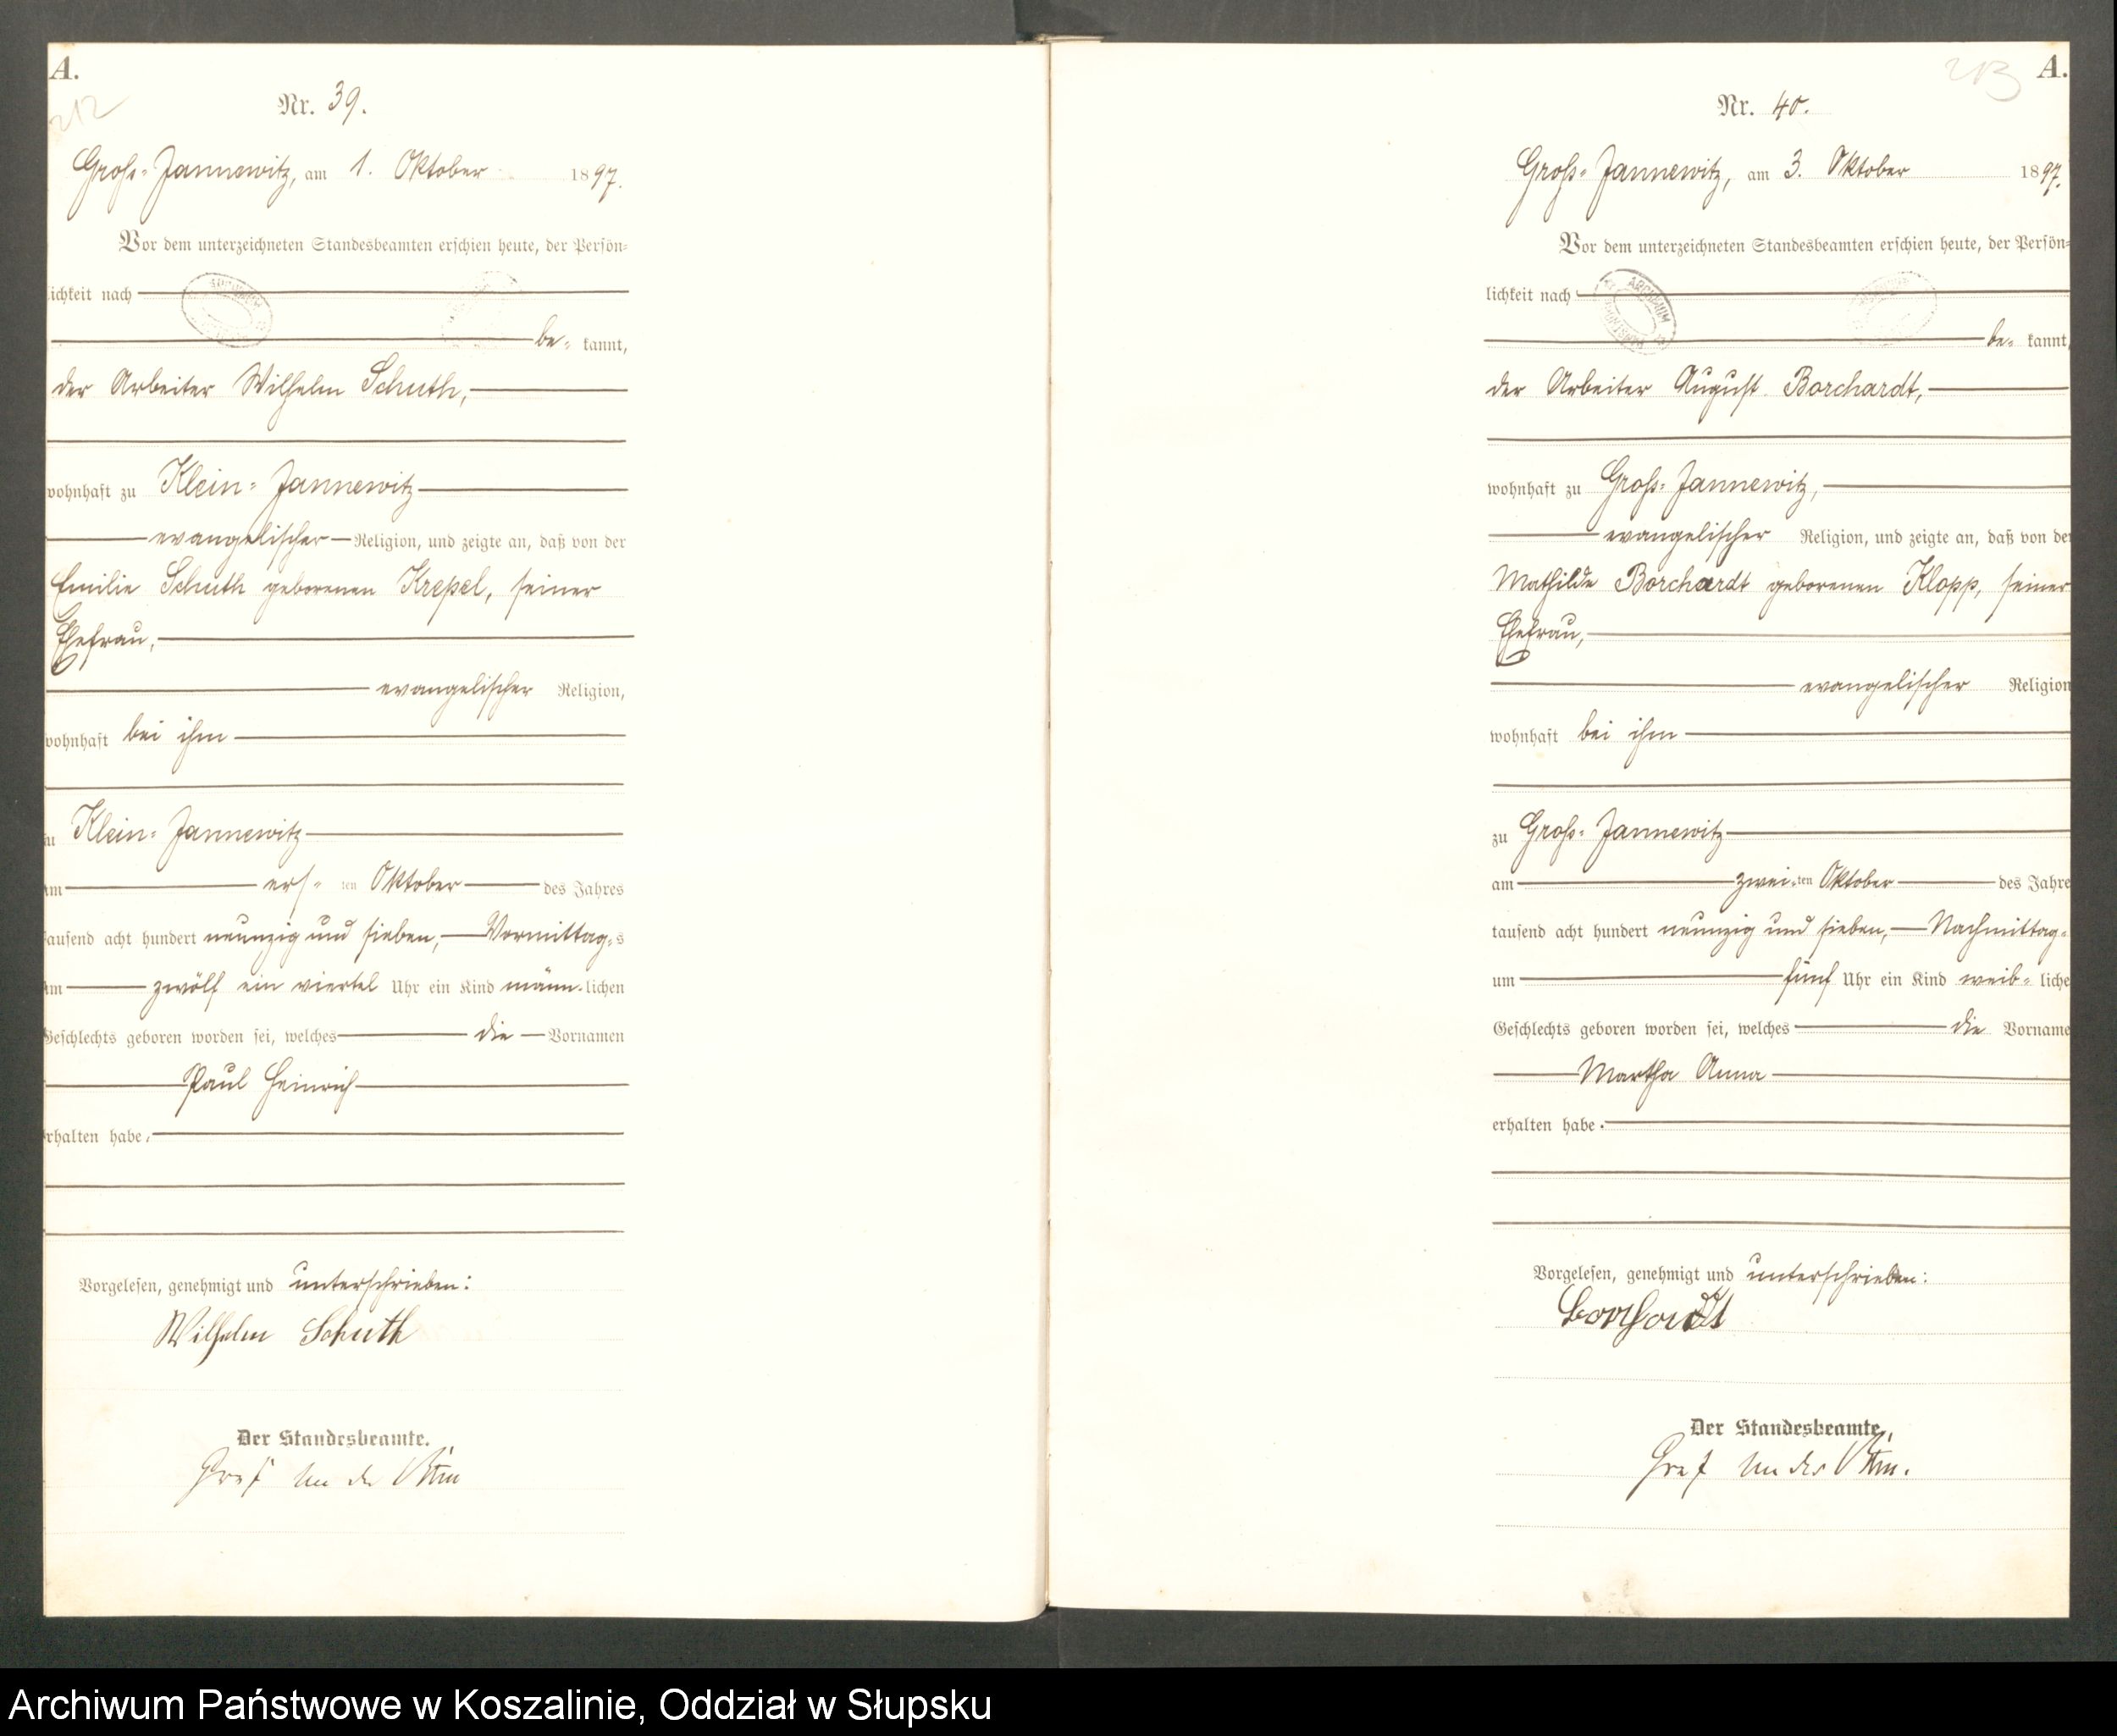 A.
212
Nr. 39.
Groß-Jannewitz, am 1. Oktober 1897.
Vor dem unterzeichneten Standesbeamten erschien heute, der Persön-
lichkeit nach
be- kannt,
der Arbeiter Wilhelm Schuth,
wohnhaft zu Klein-Jannewitz
evangelischer Religion, und zeigte an, daß von der
Emilie Schuth geborenen Krepel, seiner
Ehefrau,
evangelischer Religion,
wohnhaft bei ihm
zu Klein-Jannewitz
am ers- ten Oktober des Jahres
tausend acht hundert neunzig und sieben, Vormittags
um zwölf ein viertel Uhr ein Kind männ- lichen
Geschlechts geboren worden sei, welches die Vornamen
Paul Heinrich
erhalten habe.
Vorgelesen, genehmigt und unterschrieben:
Wilhelm Schuth
Der Standesbeamte.
Graf
213
A.
Nr. 40.
Groß-Jannewitz, am 3. Oktober 1897.
Vor dem unterzeichneten Standesbeamten erschien heute, der Persön-
lichkeit nach
ARCHIWUM
be- kannt,
der Arbeiter August Borchardt,
wohnhaft zu Groß-Jannewitz,
evangelischer Religion, und zeigte an, daß von der
Mathilde Borchardt geborenen Klopp, seiner
Ehefrau,
evangelischer Religion
wohnhaft bei ihm
zu Groß-Jannewitz
am zwei-ten Oktober des Jahre
tausend acht hundert neunzig und sieben, Nachmittag-
um fünf Uhr ein Kind weib- liche
Geschlechts geboren worden sei, welches die Vorname
Martha Anna
erhalten habe.
Vorgelesen, genehmigt und unterschrieben:
Borchardt
Der Standesbeamte.
Graf
Archiwum Państwowe w Koszalinie, Oddział w Słupsku